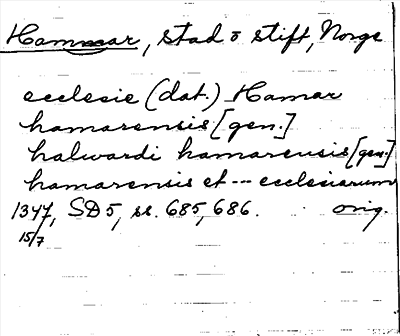 Hammar, stad o stift, Norge
ecclesie (dat.) Hamar
hamarensis [gen.]
halwardi hamarensis [gen.]
hamarensis et --- ecclesiarum
1347, SD 5, ss. 685, 686. orig.
15/7